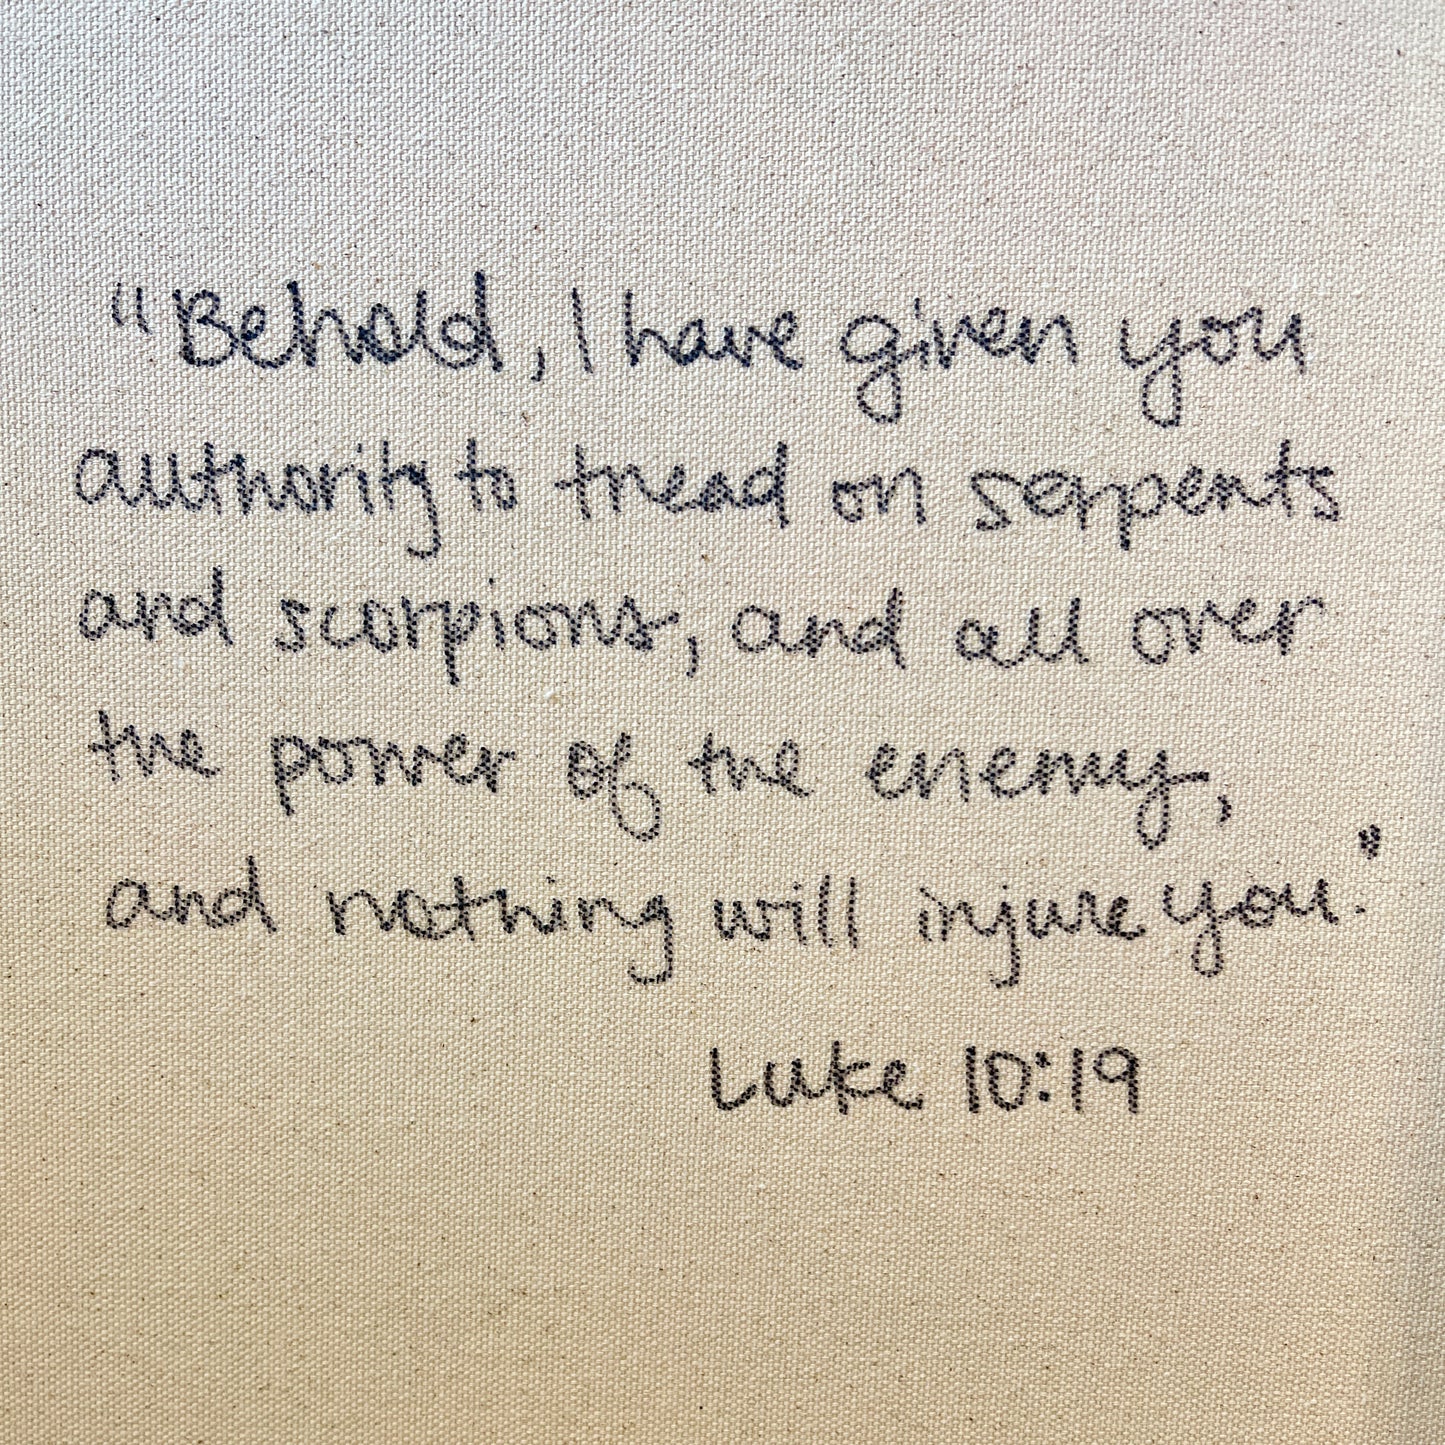 "Behold, I have given you
authority to tread on serpents
and scorpions, and all over
the power of the enemy,
and nothing will injure you."
Luke 10:19